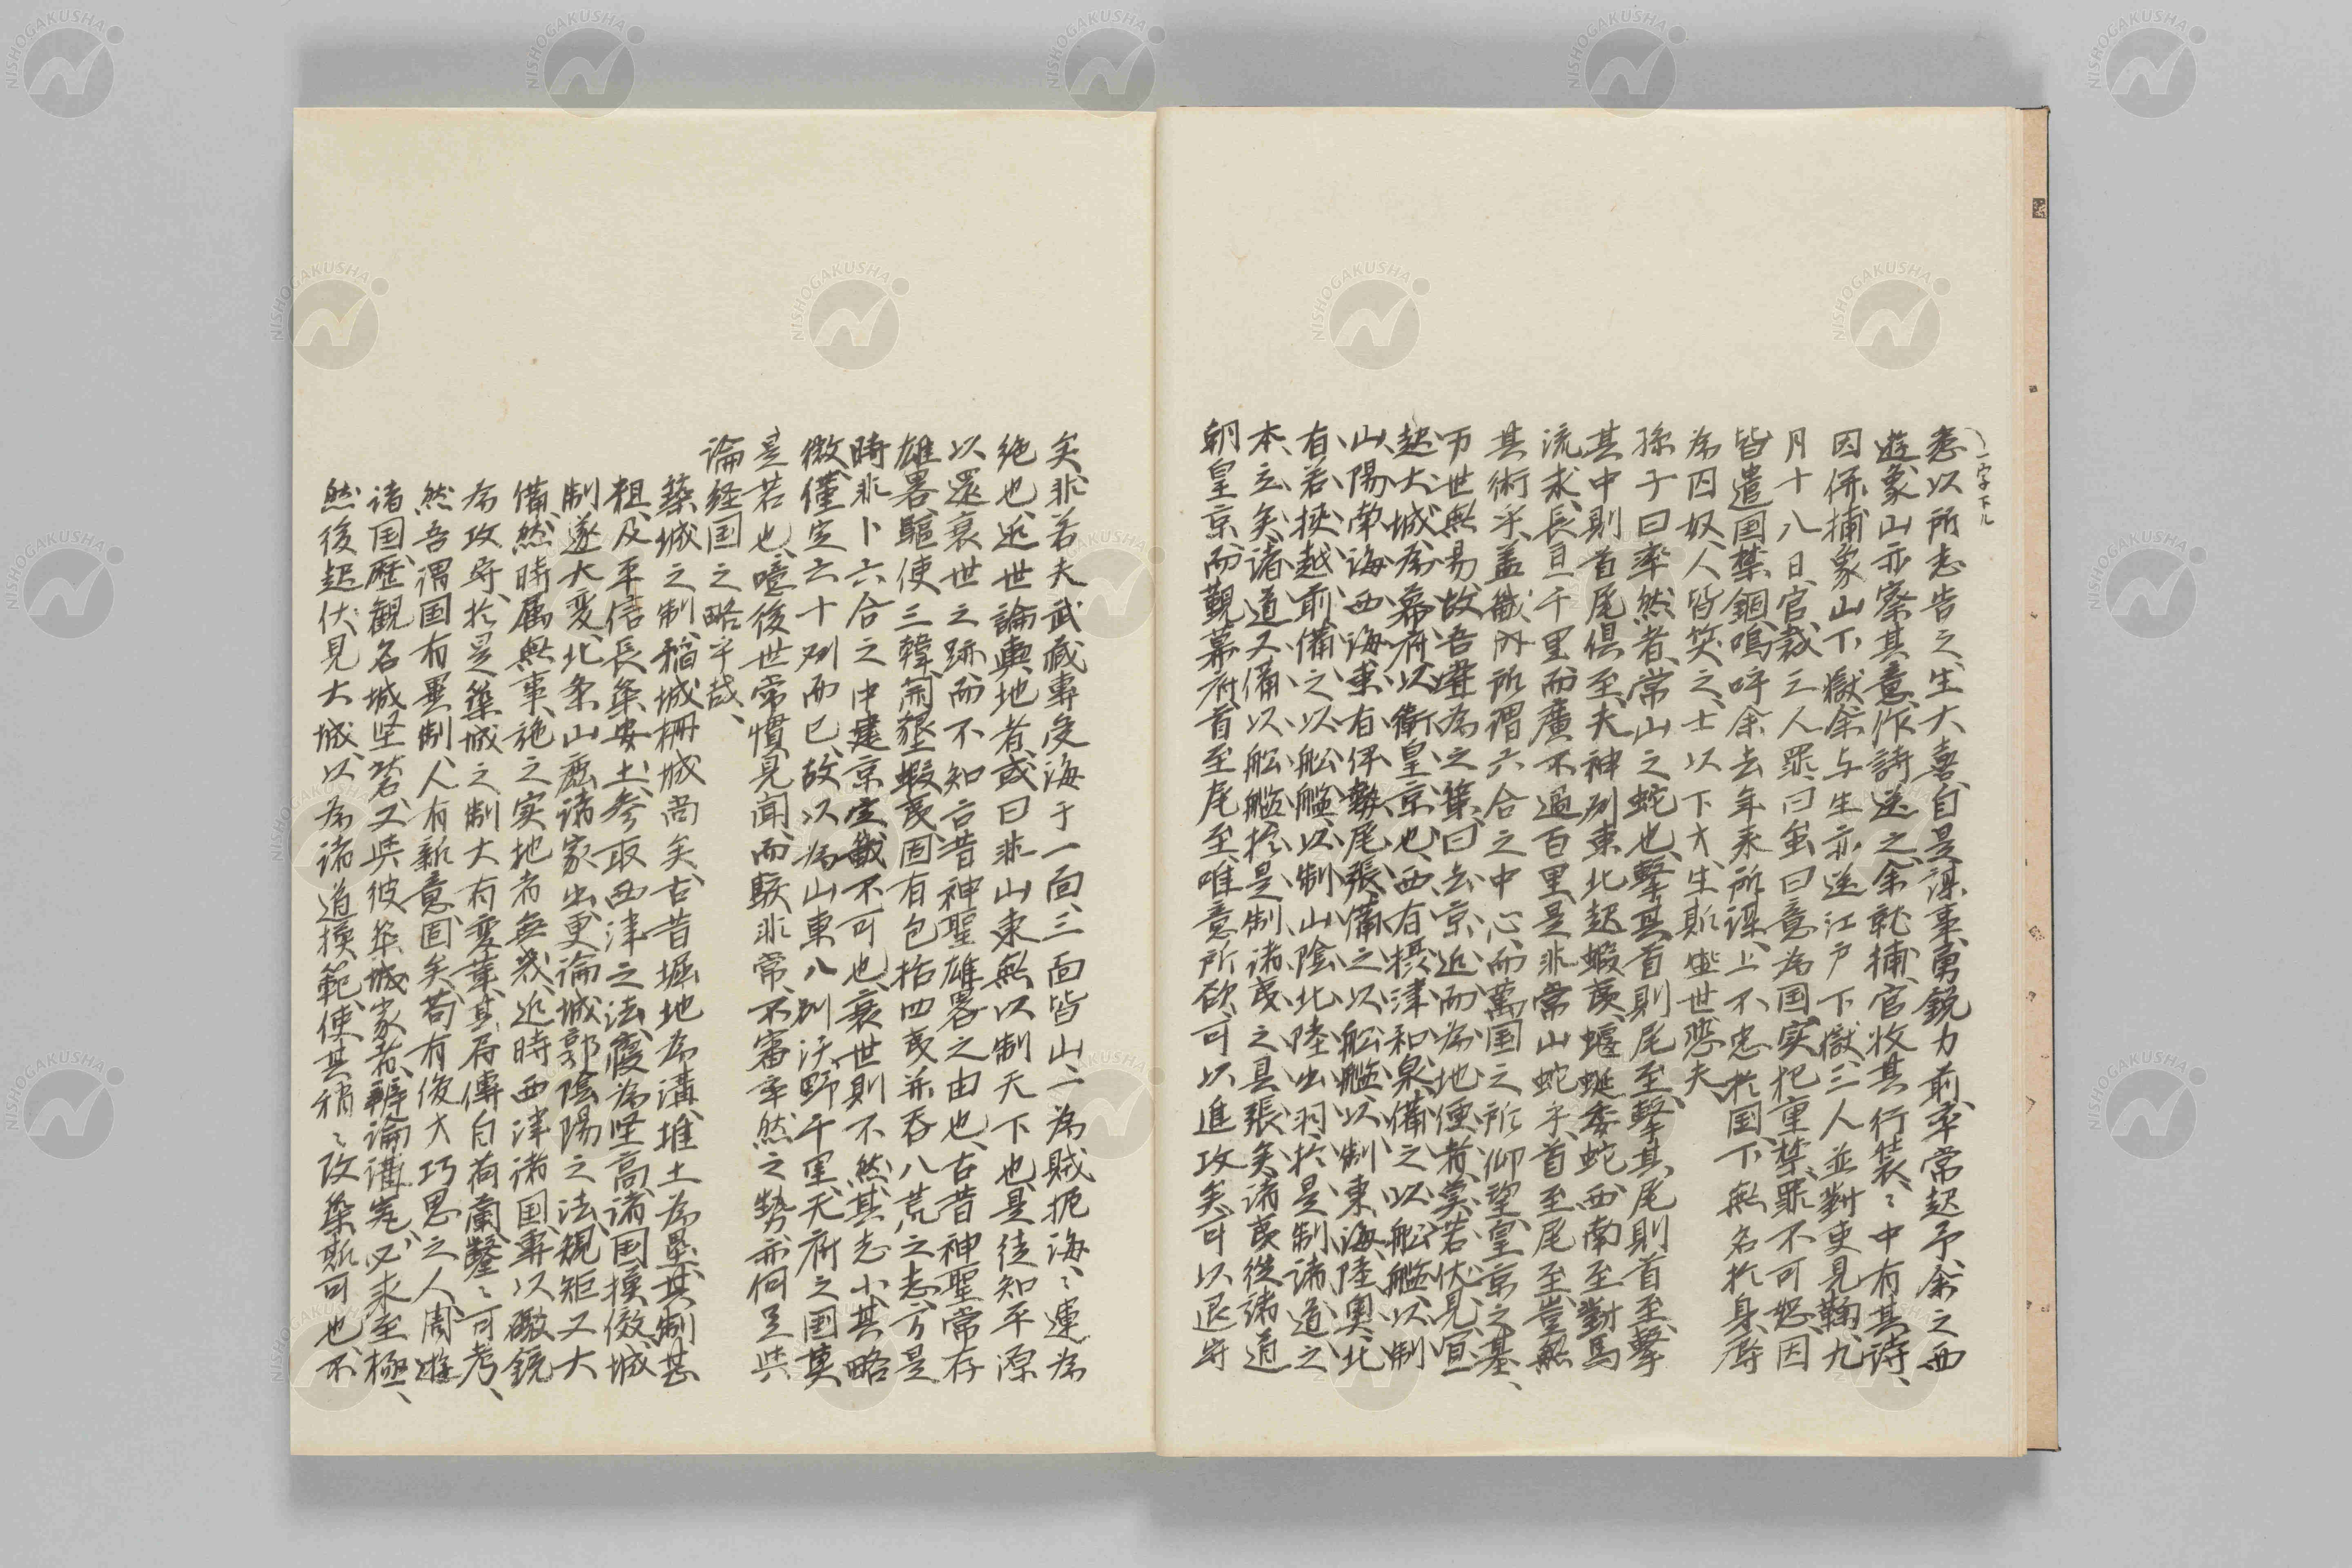 一字下ル
悉以所志告之、生大喜、自是謀事、勇鋭力前、率常起予、余之西
遊、象山亦察其意、作詩送之、余就捕、官收其行裝、ミ中有其詩、
因併捕象山下獄、余与生亦送江戸下獄、三人並對吏見鞫、九
月十八日、官裁三人罪、曰虽曰意為国、実犯重禁、罪不可恕、因
皆遣国禁錮、嗚呼余去年来所謀、上不忠於国、下無名於身、辱
為囚奴、人皆笑之、士以下才、生斯盛世悲夫、
孫子曰率然者、常山之蛇也、擊其首則尾至、擊其尾則首至、擊
其中則首尾俱至、夫神州東北起蝦夷、蜿蜒委蛇、西南至對馬
流求、長亘千里而廣不過百里、是非常山蛇乎、首至尾至、豈無
其術乎、盖畿内所謂六合之中心、而萬国之所仰望、皇京之基、
万世無易、故吾嘗為之策曰、去京近而為地便者、莫若伏見、宜
起大城、為幕府、以衛皇京也、西有摂津和泉、備之以舩艦、以制
山陽南海西海、東有伊勢尾張、備之以舩艦、以制東海陸奥、北
有若挾越前、備之以舩艦、以制山陰北陸出羽、於是制諸道之
本立矣、諸道又備以舩艦、於是制諸夷之具張矣、諸夷從諸道
朝皇京而覲幕府、首至尾至、唯意所欲、可以進攻矣、可以退守
矣、非若夫武蔵専受海于一面、三面皆山、一為賊扼海、ミ運為
絶也、近世論輿地者、或曰非山東無以制天下也、是徒知平源
以還衰世之跡、而不知古昔神聖雄畧之由也、古昔神聖常存
雄畧、驅使三韓、開墾蝦夷、固有包括四夷、并呑八荒之志、方是
時非卜六合之中、建京定畿不可也、衰世則不然、其志小、其略
微、僅定六十州而已、故以為山東八州、沃野千里、天府之国、莫
是若也、噫後世常慣見聞、而駭非常、不審率然之勢、亦何足与
論経国之略乎哉、
築城之制、稲城柵城尚矣、古昔堀地為溝、堆土為塁、其制甚
粗、及平信長築安土、参取西津之法、寖為堅高、諸国摸倣、城
制遂大変、北条山鹿諸家出、更論城郭陰陽之法、規矩又大
備、然時属無事、施之実地者無幾、近時西洋諸国、専以礮銃
為攻守、於是築城之制大有変革、其存傳自荷蘭、鑿ミ可考、
然吾謂国有異制、人有新意、固矣、苟有俊才巧思之人、周遊
諸国、歴観名城堅砦、又与彼築城家者、辨論講究、必求至極、
然後起伏見大城、以為諸道摸範、使其稍ミ改築、斯可也、不